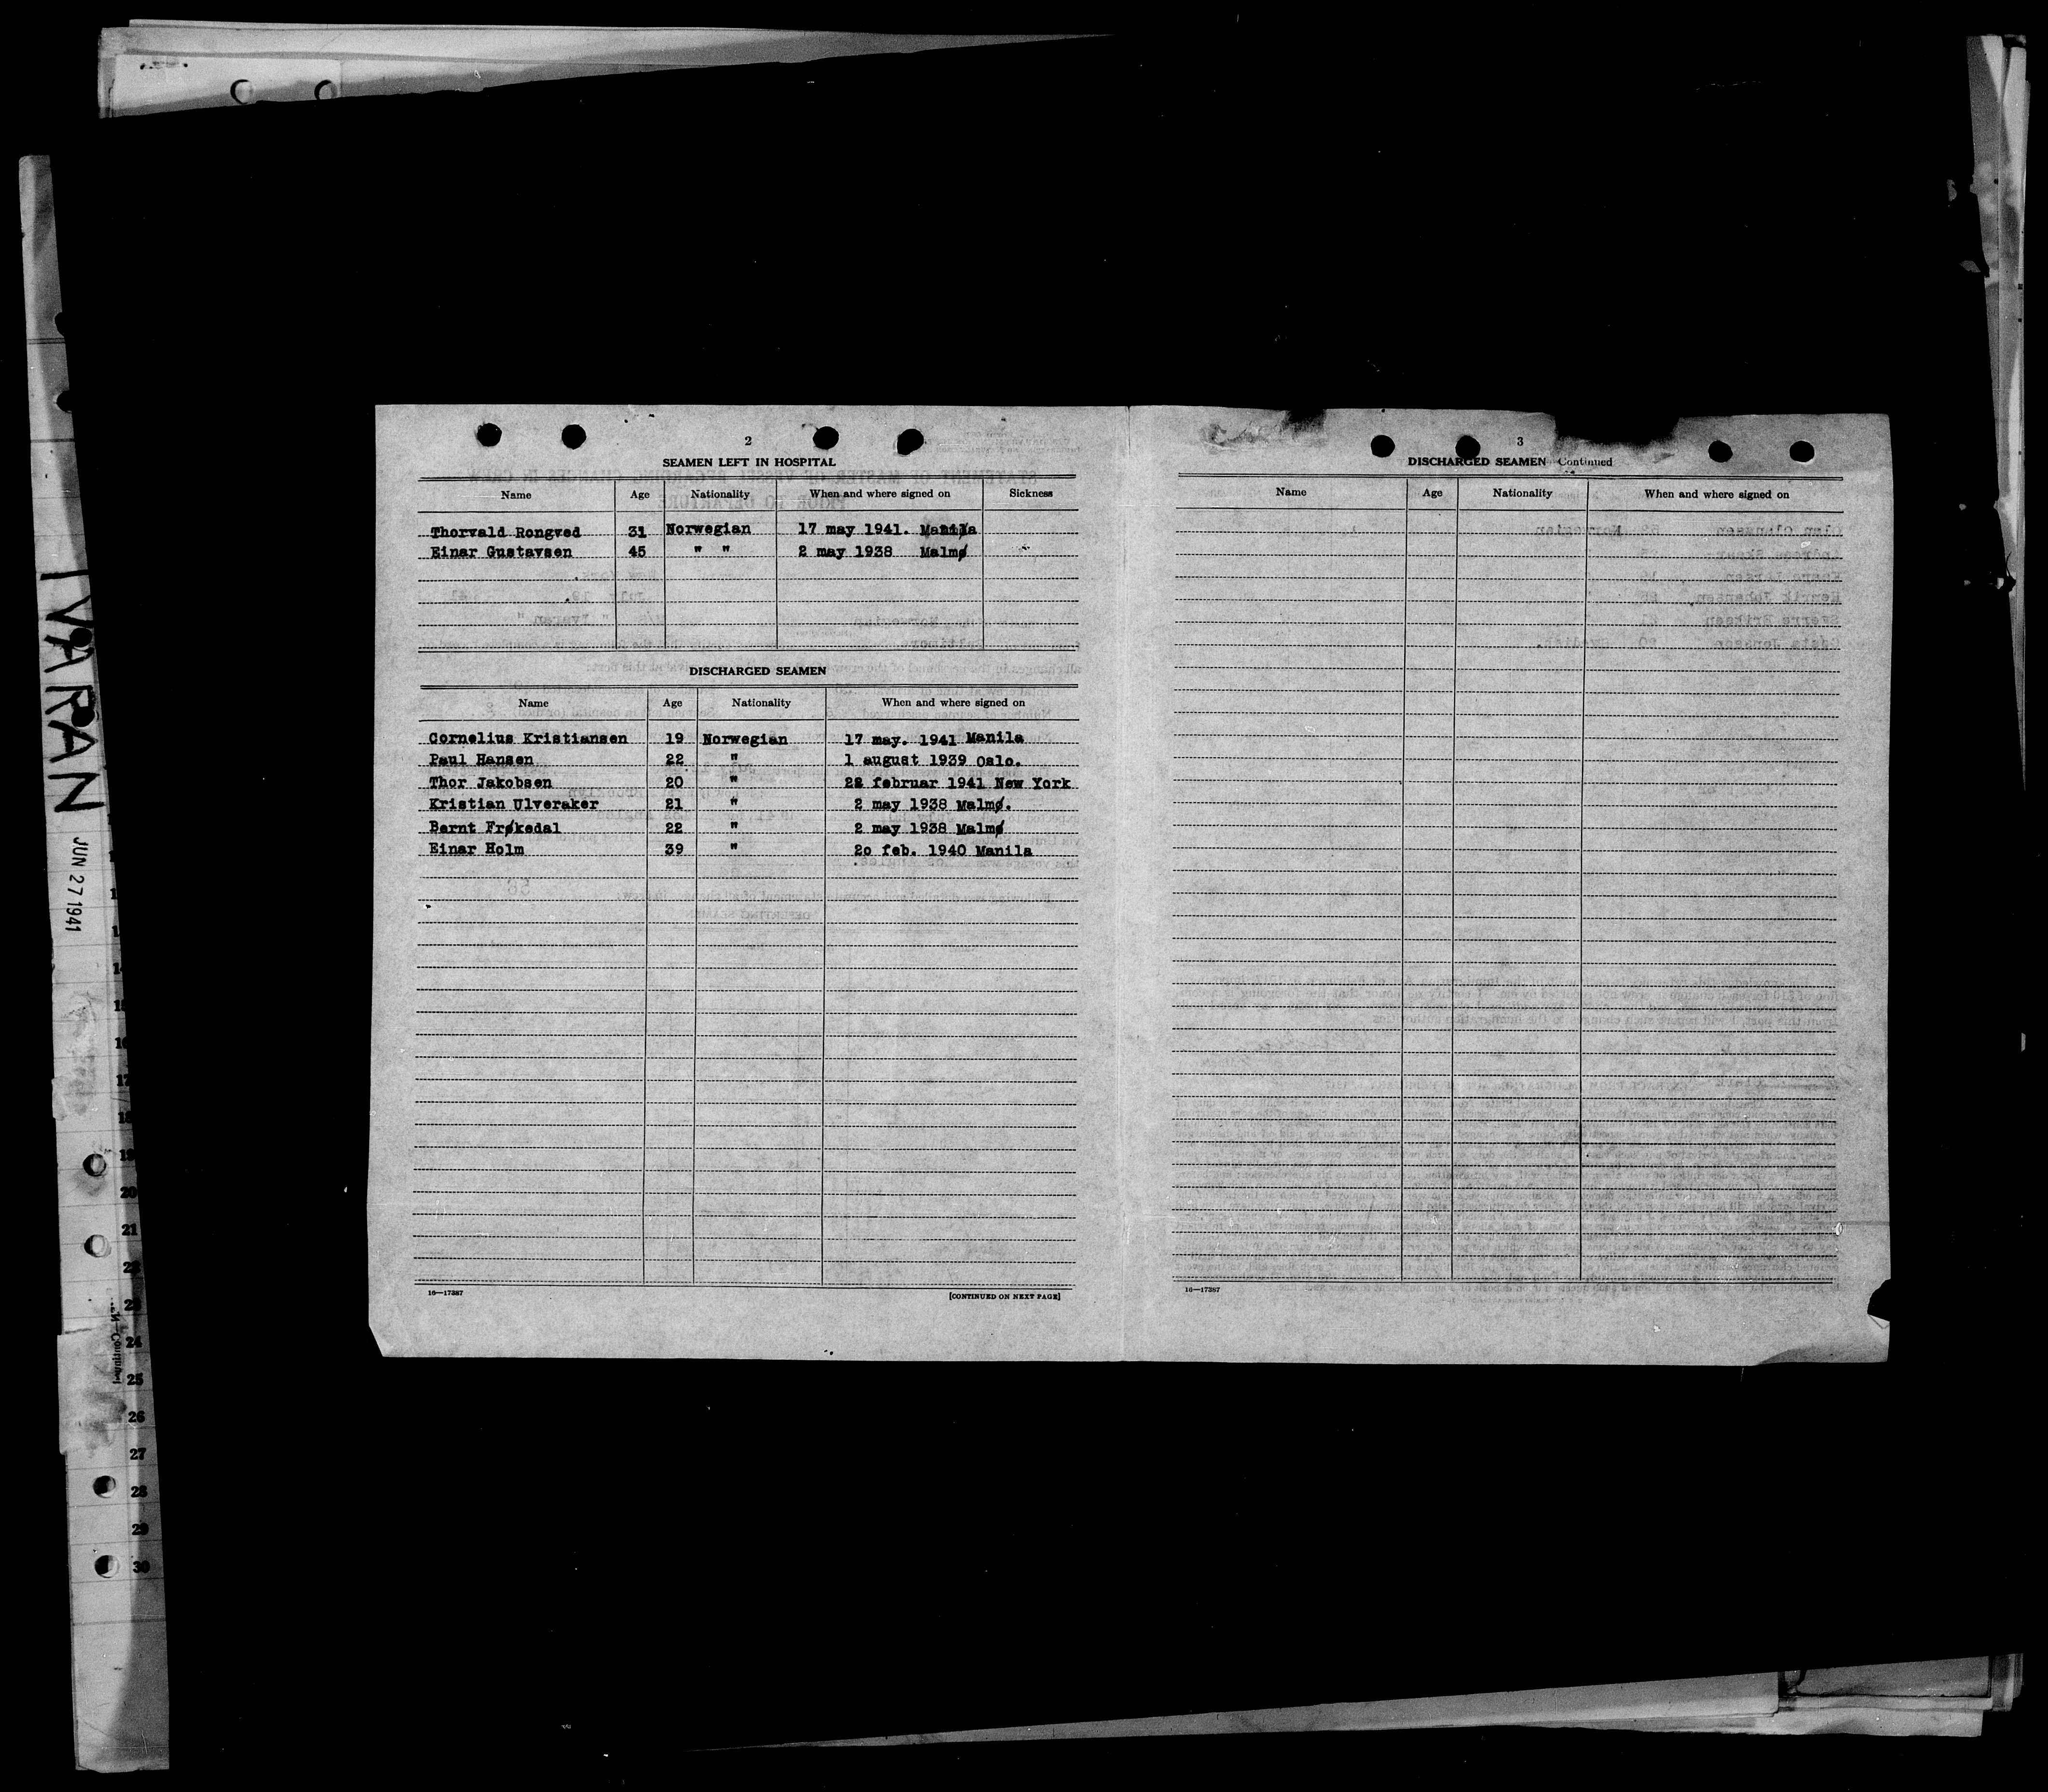 2
SEAMEN LEFT IN HOSPITAL
Name Age Nationality When and where signed on Sickness
Thorvald Rongved 31 Norwegian 17 may 1941. Manila
Einar Gustavsen 45 " " 2 may 1938 Malmø
DISCHARGED SEAMEN
Name Age Nationality When and where signed on
Cornelius Kristiansen 19 Norwegian 17 may. 1941 Manila
Paul Hansen 22 " 1 august 1939 Oslo.
Thor Jakobsen 20 " 22 februar 1941 New York
Kristian Ulveraker 21 " 2 may 1938 Malmø.
Bernt Frøkedal 22 " 2 may 1938 Malmø
Einar Holm 39 " 20 feb. 1940 Manila
16—17387 [CONTINUED ON NEXT PAGE]
3
DISCHARGED SEAMEN—Continued
Name Age Nationality When and where signed on
16—17387
IVARAN
JUN 27 1941
15
16
17
18
19
20
21
22
23
24
25
26
27
28
29
30